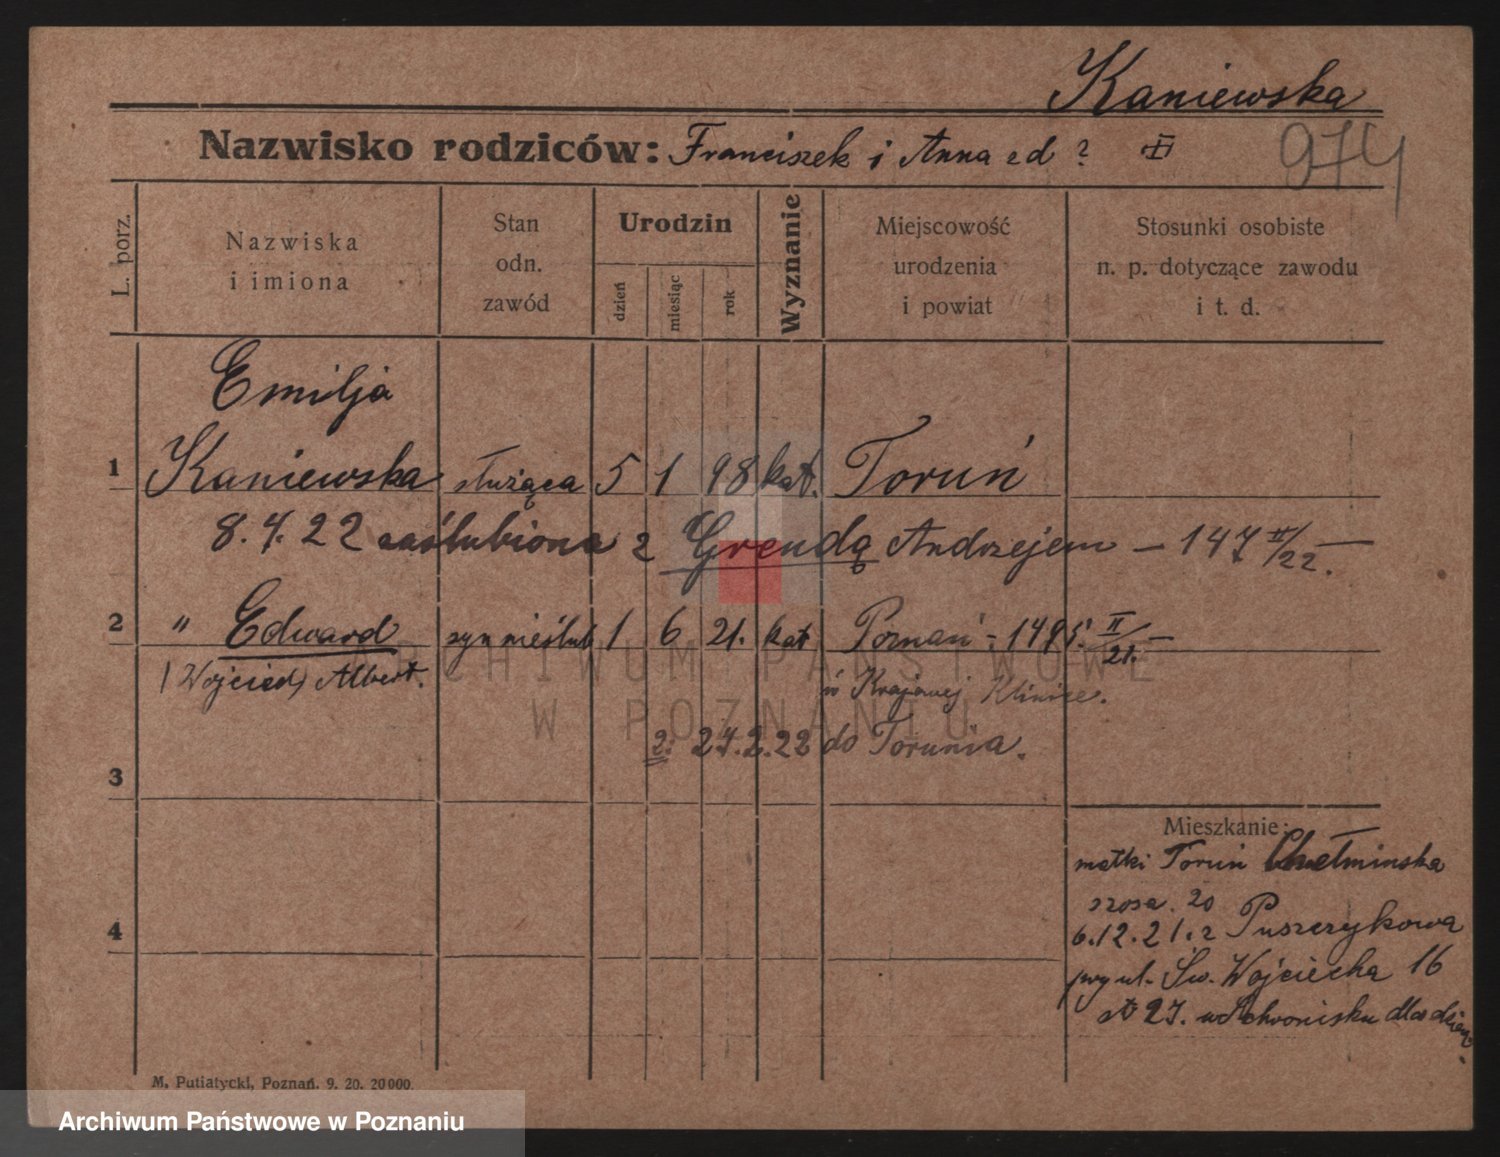 Kaniewska
Nazwisko rodziców: Franciszek i Anna zd ?
974
L. porz.
Nazwiska
i imiona
Stan
odn.
zawód
Urodzin
dzień
miesiąc
rok
Wyznanie
Miejscowość
urodzenia
i powiat
Stosunki osobiste
n. p. dotyczące zawodu
i t. d.
Emilja
1 Kaniewska służąca 5 1 98 kat. Toruń
8.4.22 zaślubiona z Grendą Andrzejem — 147 II/22. —
2 " Edward syn nieślub 1 6 21. kat Poznań - 1495. II/21. —
/Wojciech/ Albert.
w Krajowej Klinice.
2. 24.2.22 do Torunia.
3
4
Mieszkanie:
matki Toruń Chełminska
szosa. 20
6.12.21. z Puszczykowa
przy ul. Św. Wojciecha 16
27. w Schronisku dla dzieci.
M. Putiatycki, Poznań. 9. 20. 20000.
ARCHIWUM PAŃSTWOWE
W POZNANIU
Archiwum Państwowe w Poznaniu